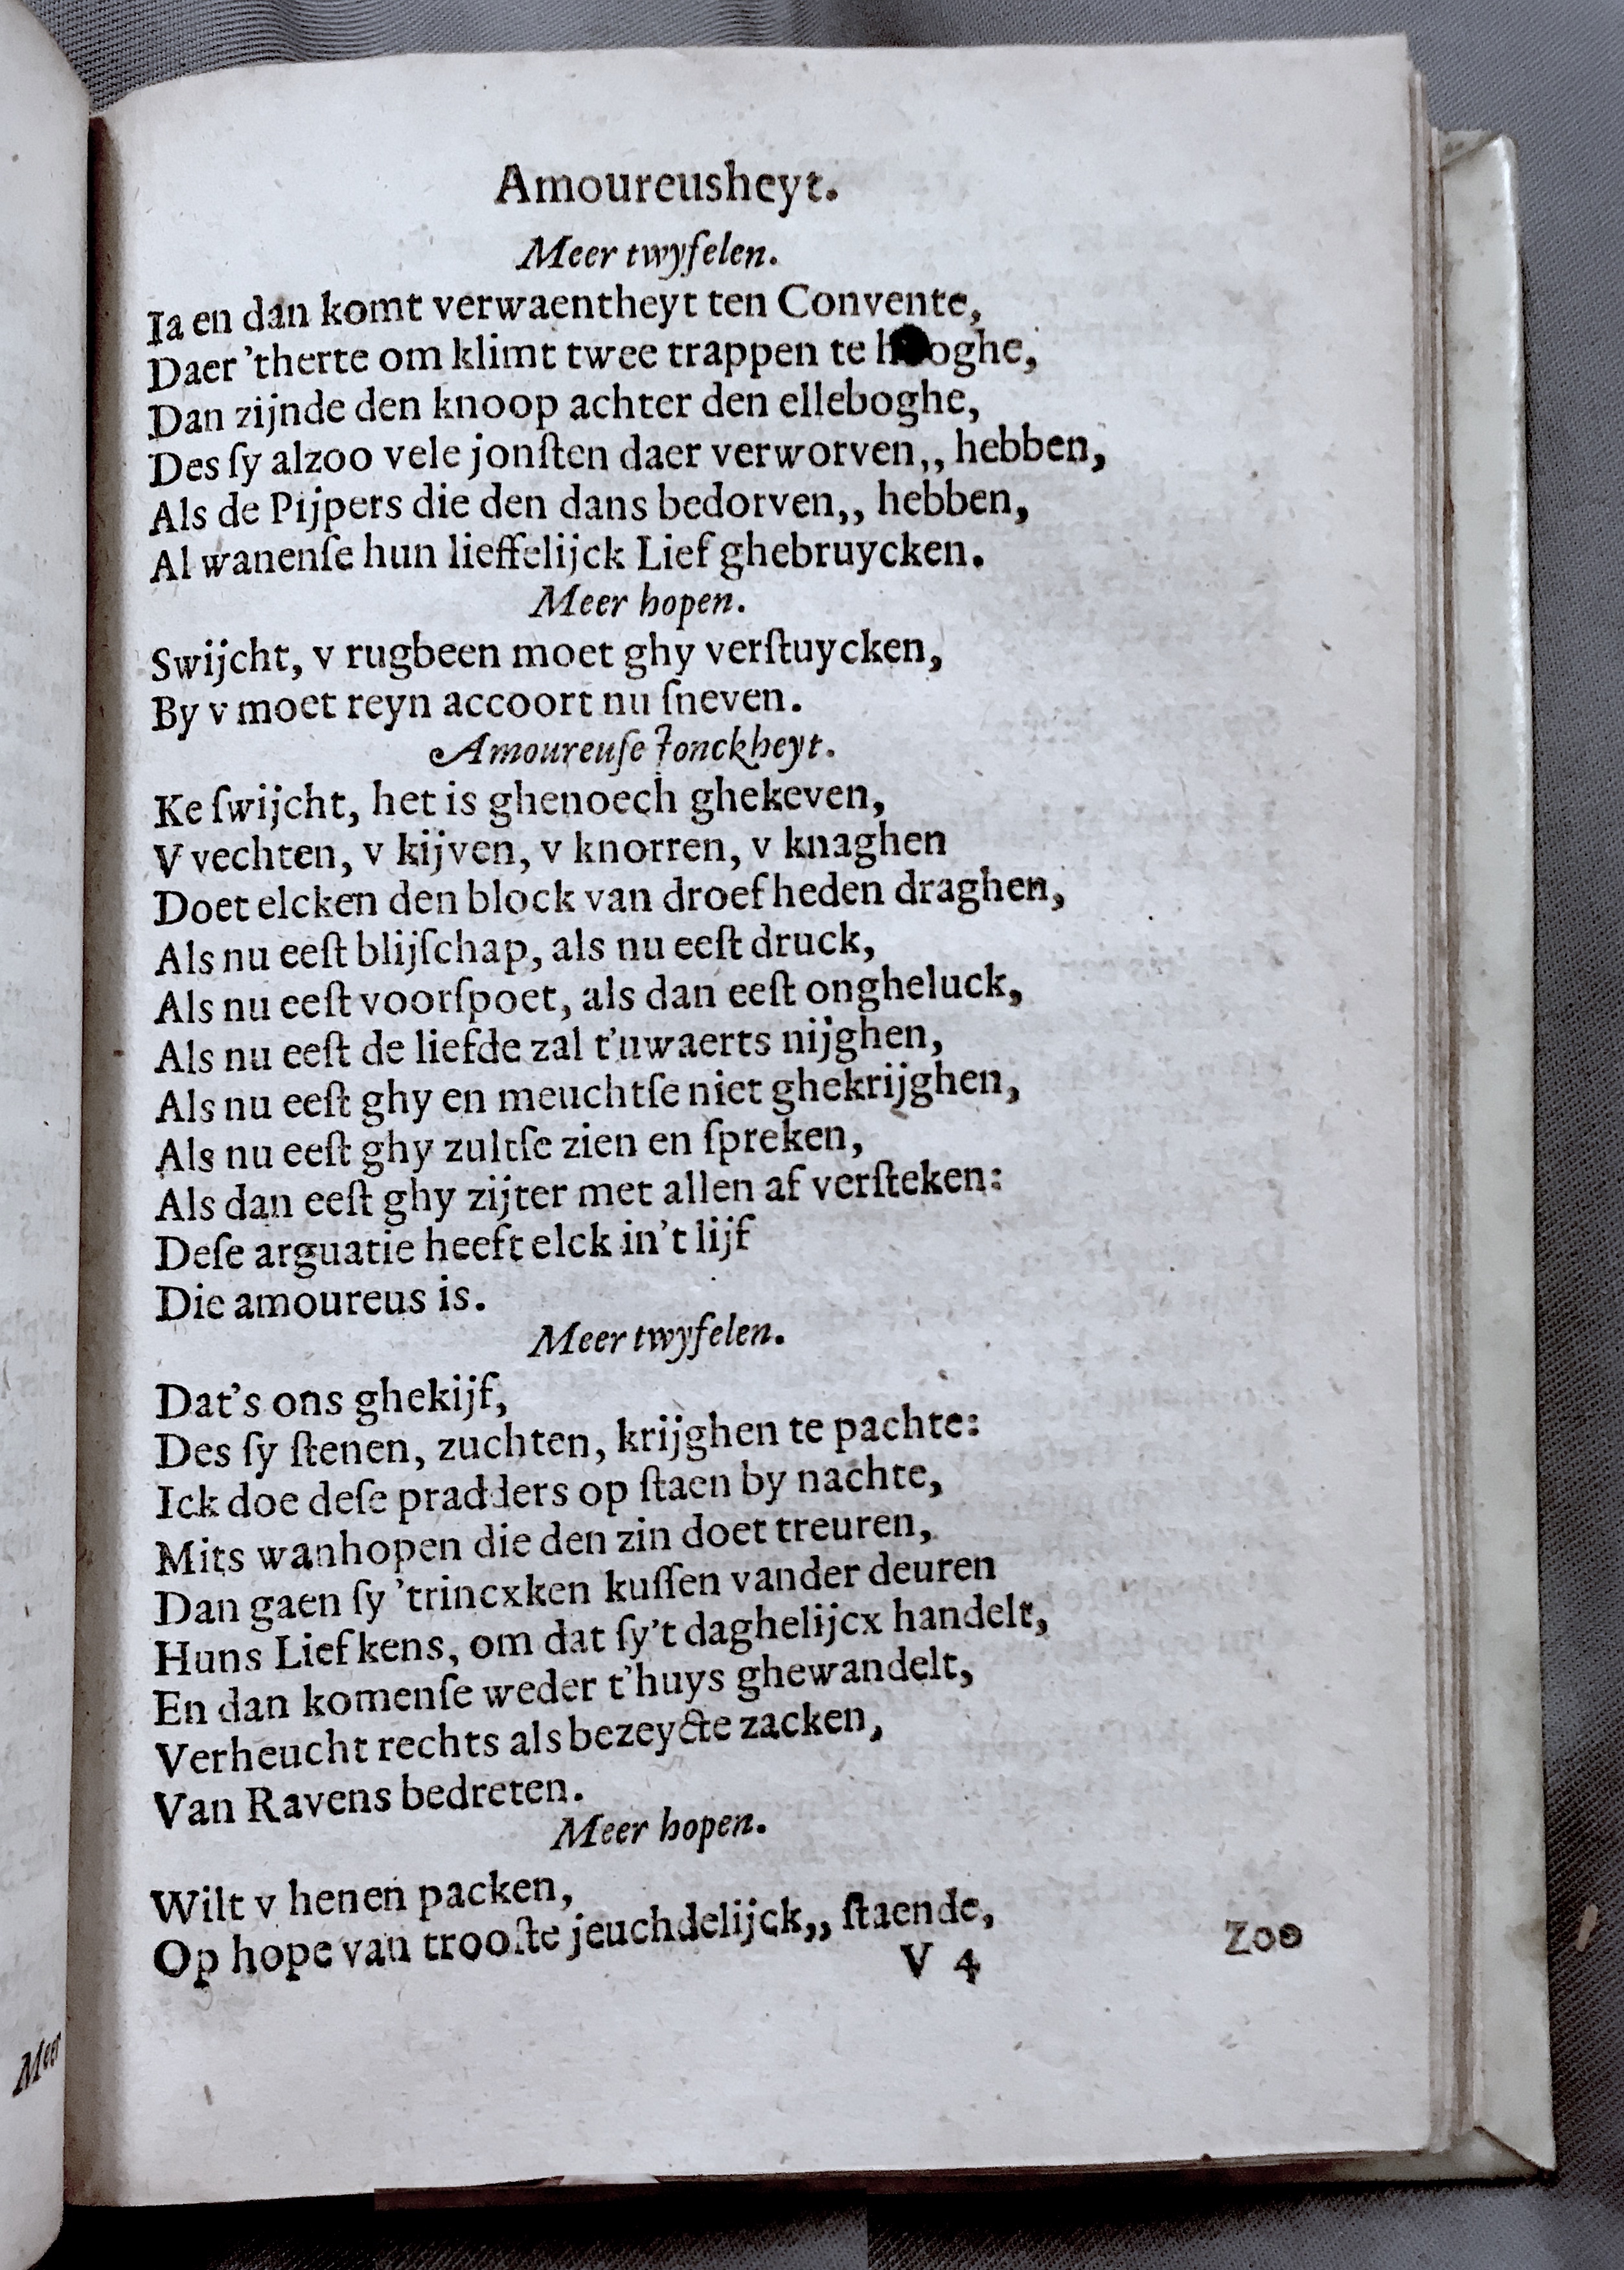 Amoureusheyt.
Meer twyfelen.
Ia en dan komt verwaentheyt ten Convente,
Daer 'therte om klimt twee trappen te hooghe,
Dan zijnde den knoop achter den elleboghe,
Des ſy alzoo vele jonſten daer verworven,, hebben,
Als de Pijpers die den dans bedorven,, hebben,
Al wanenſe hun lieffelijck Lief ghebruycken.
Meer hopen.
Swijcht, v rugbeen moet ghy verſtuycken,
By v moet reyn accoort nu ſneven.
Amoureuſe Jonckheyt.
Ke ſwijcht, het is ghenoech ghekeven,
V vechten, v kijven, v knorren, v knaghen
Doet elcken den block van droefheden draghen,
Als nu eeſt blijſchap, als nu eeſt druck,
Als nu eeſt voorſpoet, als dan eeſt ongheluck,
Als nu eeſt de liefde zal t'uwaerts nijghen,
Als nu eeſt ghy en meuchtſe niet ghekrijghen,
Als nu eeſt ghy zultſe zien en ſpreken,
Als dan eeſt ghy zijter met allen af verſteken:
Deſe arguatie heeft elck in't lijf
Die amoureus is.
Meer twyfelen.
Dat's ons ghekijf,
Des ſy ſtenen, zuchten, krijghen te pachte:
Ick doe deſe pradders op ſtaen by nachte,
Mits wanhopen die den zin doet treuren,
Dan gaen ſy 'trincxken kuſſen vander deuren
Huns Liefkens, om dat ſy't daghelijcx handelt,
En dan komenſe weder t'huys ghewandelt,
Verheucht rechts als bezeycte zacken,
Van Ravens bedreten.
Meer hopen.
Wilt v henen packen,
Op hope van trooſte jeuchdelijck,, ſtaende,
V 4
Zoo
Meer